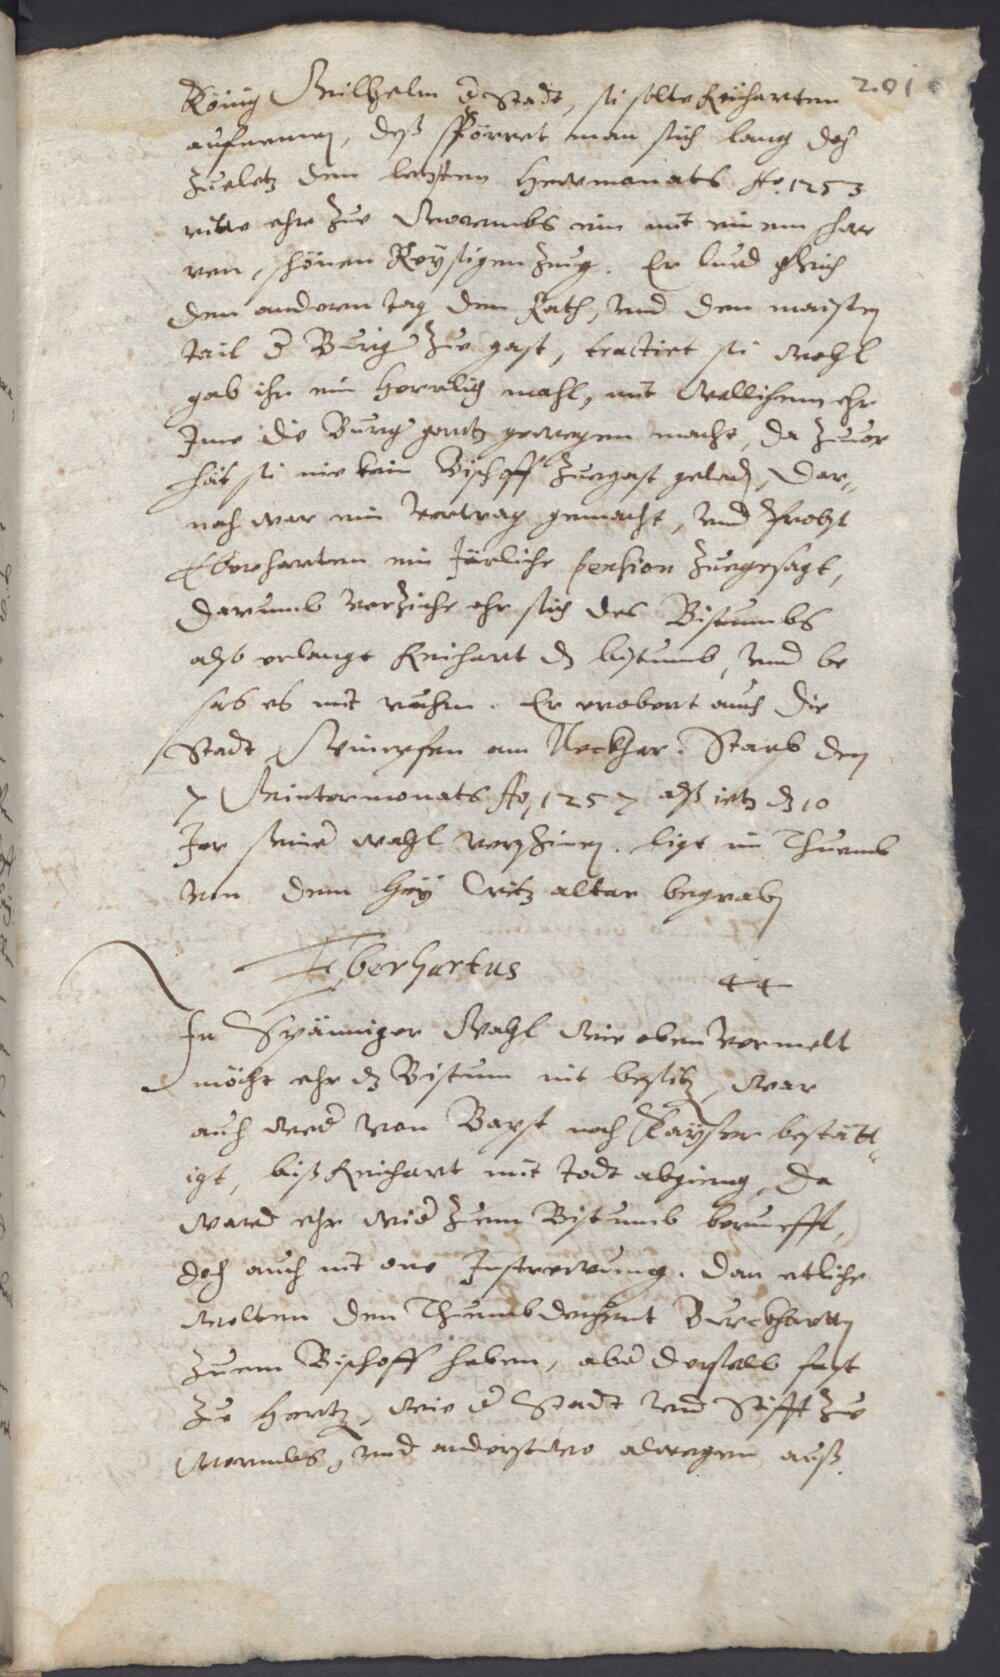 201
König Wilhelm d Stadt, sie solte Reicharten
aufnemen, deß spörret man sich lang doch
Zueletz den letsten Hewmonats Ao. 1253
ritte ehr zue Wormbs ein mit einem
schönen Reysigen Zeug. Er lued gleich
den anderen tag den Rath, vnd den maisten
tail d Burg zue gast, tractiert sie wohl
gab ihn ein herrlich mahl, mit wellichem ehr
Jme die Burg gantz gewegen macht, da zuuor
hät sie nie kein Bischoff zuegast geladen, Dar„
nach war ein Vertrag gemacht, vnd Probst
Eberharten ein Järliche pension zuegesagt,
darumb verziche ehr sich des Bistumbs
also erlangt Reichart dz bistumb, vnd be
sas es mit ruhm. Er erobert auch die
Stadt Wimpfen am Neckhar. Starb den
7 Wintermonats Ao. 1257 alß ietz dz 10
Jar seiner wahl verschinen. ligt im Thuemb
von dem Creitz altar begraben
Eberhartus 44
In Spänniger Wahl wie oben vermelt
möcht ehr dz Bistum nit besitzen, war
auch weder von Bapst noch Kayser bestätt„
igt, biß Reichart mit todt abgieng, Da
ward ehr wider zuem Bistumb berueffft,
doch auch nit one Zustrewung. Dan etliche
wolten den Thumbdechant Burckharten
zuem Bischoff haben, aber derselb fast
zue Hertzen, wie d Stadt vnd Stifft zue
Wormbs, vnd anderstwo alwegen auß